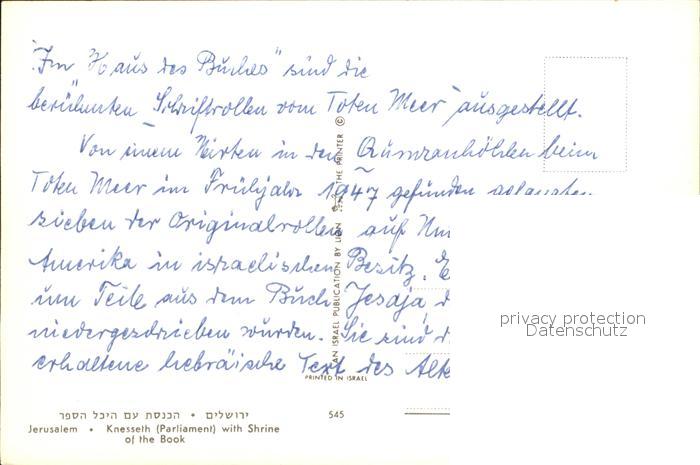 "Im Haus des Buches" sind die
berühmten Schriftrollen vom Toten Meer ausgestellt.
Von einem Hirten in den Qumranhöhlen beim
Toten Meer im Frühjahr 1947 gefunden gelangten
sieben der Originalrollen auf Um
Amerika in israelischen Besitz.
um Teile aus dem Buch Jesaja, d
niedergeschrieben wurden. Sie sind d
erhaltene hebräische Text des Alte
AN ISRAEL PUBLICATION BY LION THE PRINTER ©
PRINTED IN ISRAEL
privacy protection
Datenschutz
ירושלים • הכנסת עם היכל הספר
545
Jerusalem • Knesseth (Parliament) with Shrine
of the Book